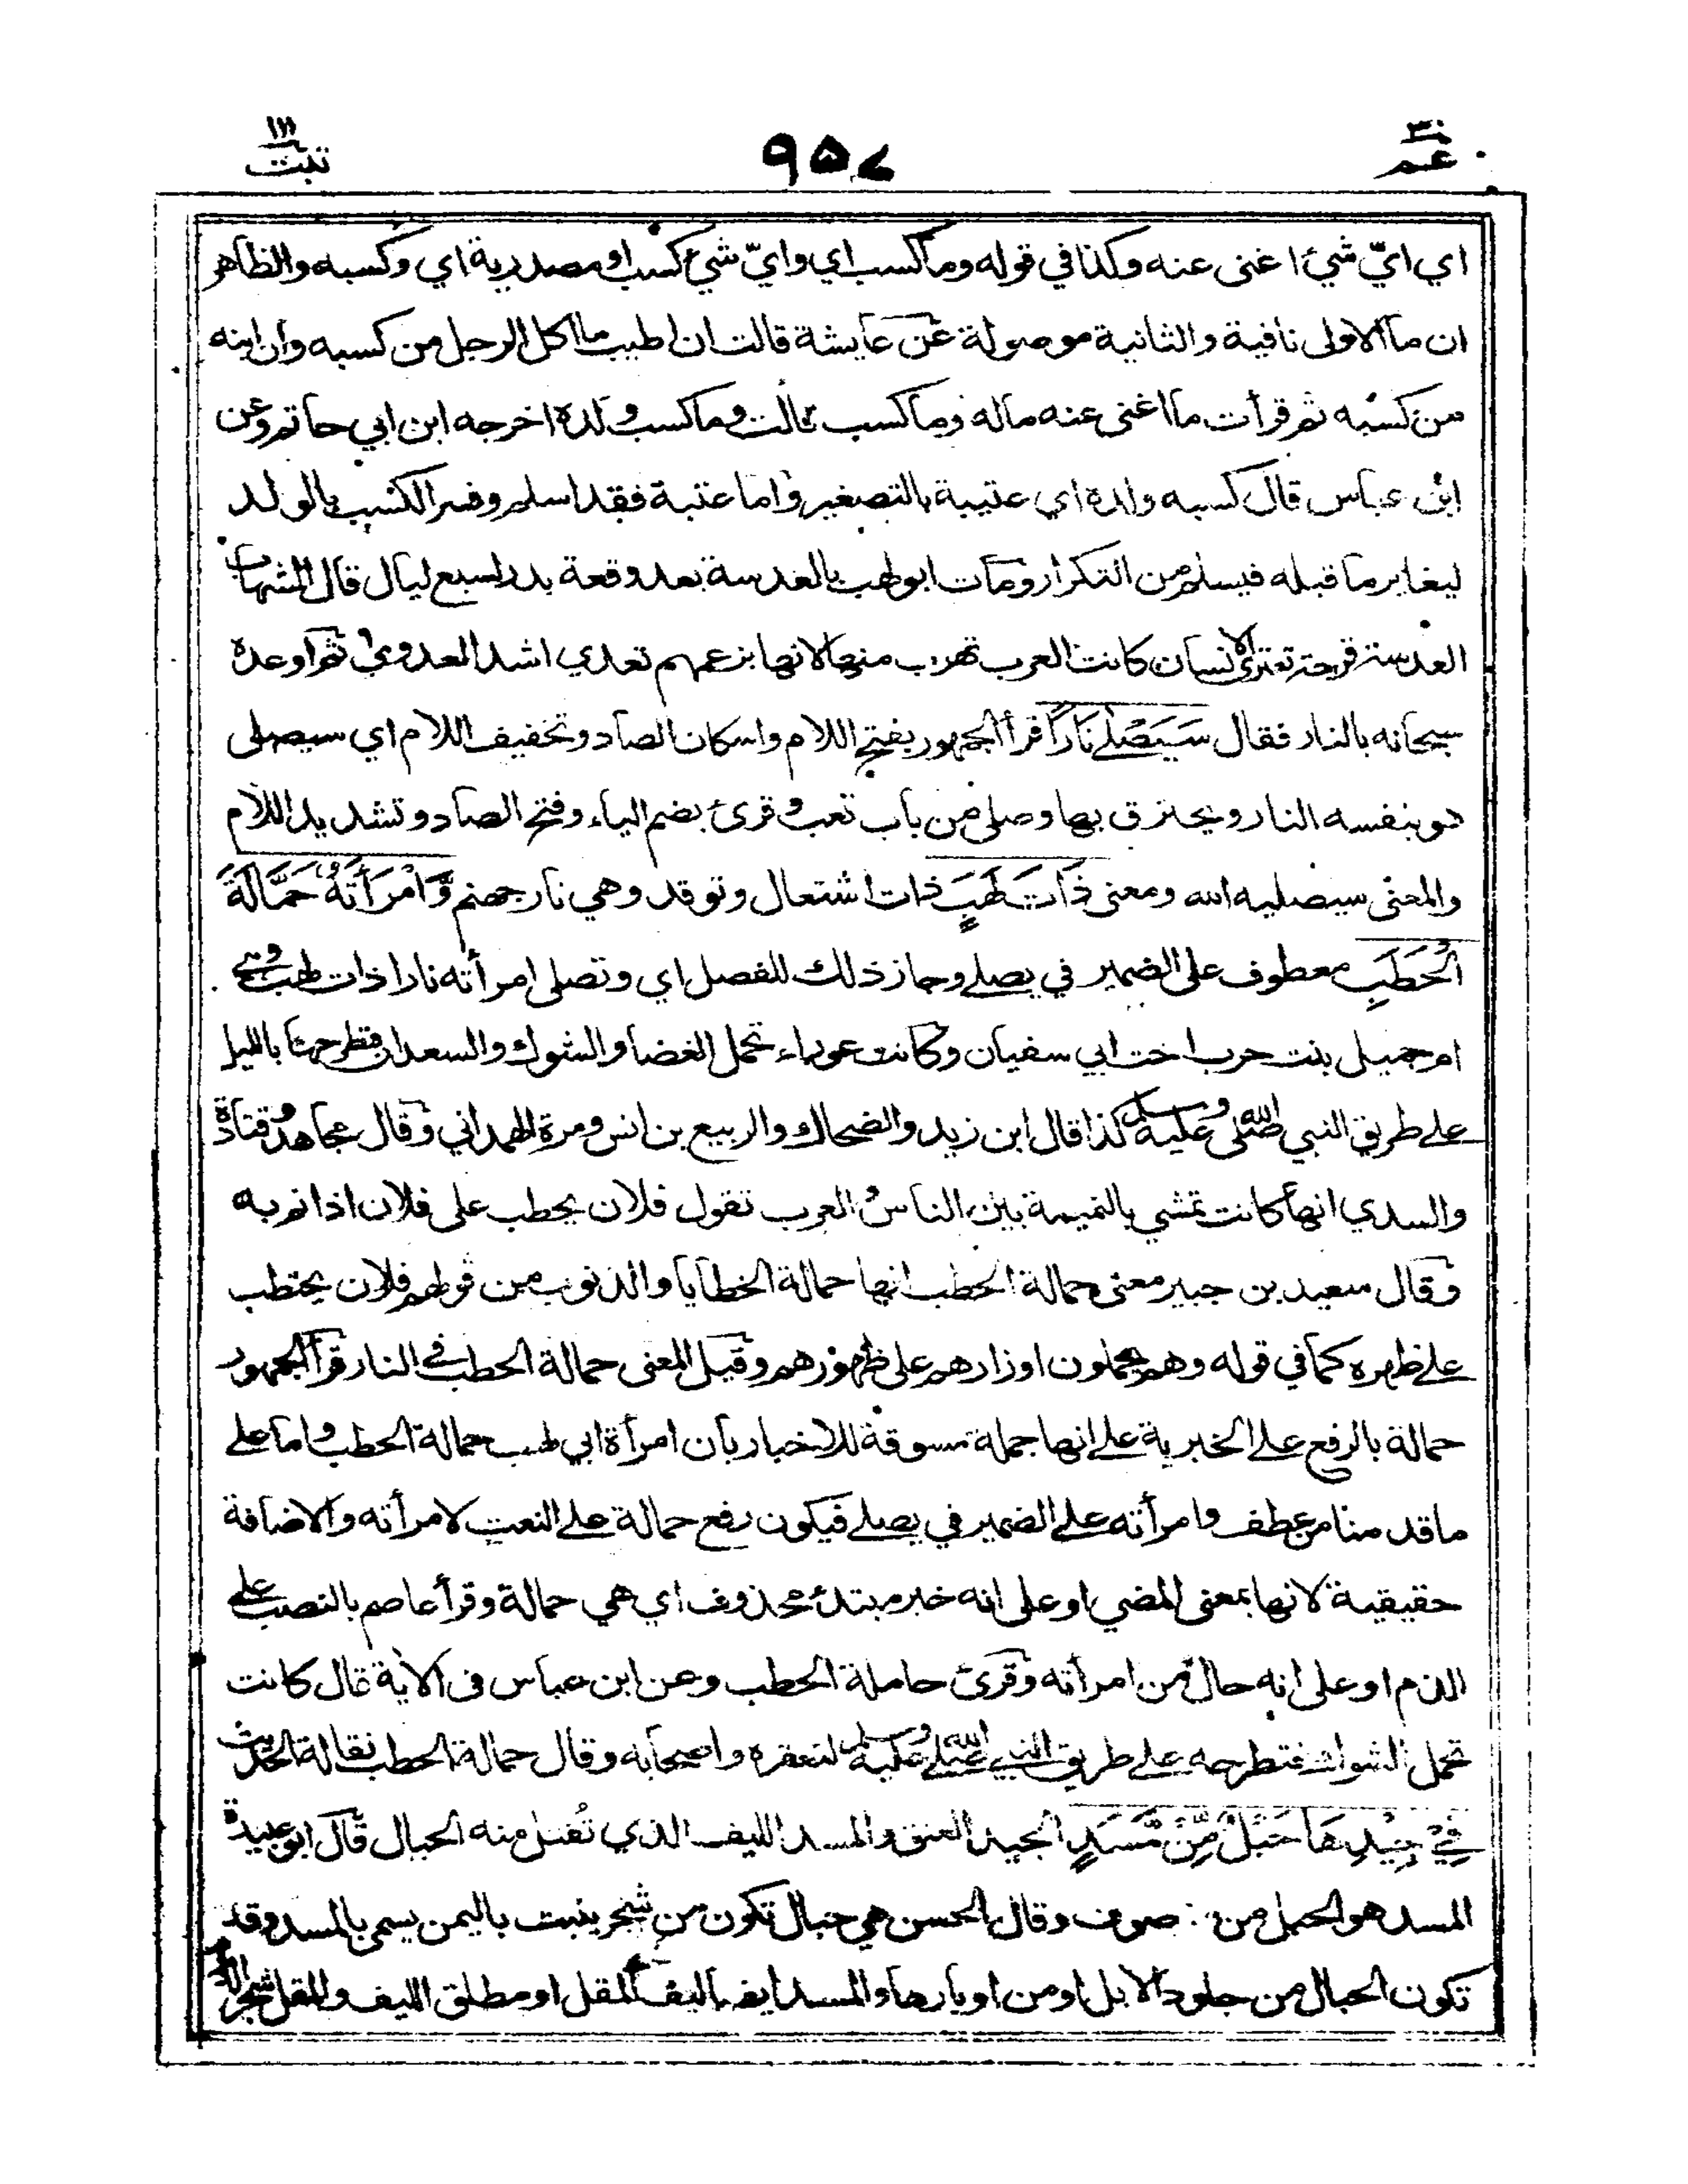 عم ٣٠
٩٥٧
تبت ١١١
اي ايّ شيء اغنى عنه وكذا في قوله وما كسب اي وايّ شيء كسب او مصدرية اي وكسبه والظاهر
ان ما الاولى نافية والثانية موصولة عن عايشة قالت ان اطيب ما اكل الرجل من كسبه وان ابنه
من كسبه ثم قرأت ما اغنى عنه ماله وما كسب قالت وما كسب ولده اخرجه ابن ابي حاتم وعن
ابن عباس قال كسبه ولده اي عتيبة بالتصغير واما عتبة فقد اسلم وفسر الكسب بالولد
ليغاير ما قبله فيسلم من التكرار ومات ابو لهب بالعدسة بعد وقعة بدر لسبع ليال قال الشهاب
العدسة قرحة تعتري الانسان كانت العرب تهرب منها لانها بزعمهم تعدي اشد العدوى ثم اوعده
سبحانه بالنار فقال سَيَصْلٰى نَارًا قرأ الجمهور بفتح اللام واسكان الصاد وتخفيف اللام اي سيصلى
هو بنفسه النار ويحترق بها وصلي من باب تعب وقرئ بضم الياء وفتح الصاد وتشديد اللام
والمعنى سيصليه الله ومعنى ذَاتَ لَهَبٍ ذات اشتعال وتوقد وهي نار جهنم وَّامْرَأَتُهُ حَمَّالَةَ
الْحَطَبِ معطوف على الضمير في يصلى وجاز ذلك للفصل اي وتصلى امرأته نارا ذات لهب وهي
ام جميل بنت حرب اخت ابي سفيان وكانت عوراء تحمل الغضا والشوك والسعدان فتطرحها بالليل
على طريق النبي صلى الله عليه وسلم كذا قال ابن زيد والضحاك والربيع بن انس ومرة الهمداني وقال مجاهد وقتادة
والسدي انها كانت تمشي بالنميمة بين الناس والعرب تقول فلان يحطب على فلان اذا نم به
وقال سعيد بن جبير معنى حمالة الحطب انها حمالة الخطايا والذنوب من قولهم فلان يحتطب
على ظهره كما في قوله وهم يحملون اوزارهم على ظهورهم وقيل المعنى حمالة الحطب في النار قرأ الجمهور
حمالة بالرفع على الخبرية على انها جملة مسوقة للاخبار بان امرأة ابي لهب حمالة الحطب واما على
ما قدمنا من عطف وامرأته على الضمير في يصلى فيكون رفع حمالة على النعت لامرأته والاضافة
حقيقية لانها بمعنى المضي او على انه خبر مبتدئ محذوف اي هي حمالة وقرأ عاصم بالنصب على
الذم او على انه حال من امرأته وقرئ حاملة الحطب وعن ابن عباس في الآية قال كانت
تحمل الشوك فتطرحه على طريق النبي صلى الله عليه وسلم لتعقره واصحابه وقال حمالة الحطب نقالة الحديث
فِيْ جِيْدِهَا حَبْلٌ مِّنْ مَّسَدٍ الجيد العنق والمسد الليف الذي تُفتل منه الحبال قال ابو عبيدة
المسد هو الحبل من صوف وقال الحسن هي حبال تكون من شجر ينبت باليمن يسمى بالمسد وقد
تكون الحبال من جلود الابل او من اوبارها والمسد ايضا ليف المقل او مطلق الليف والمقل شجر